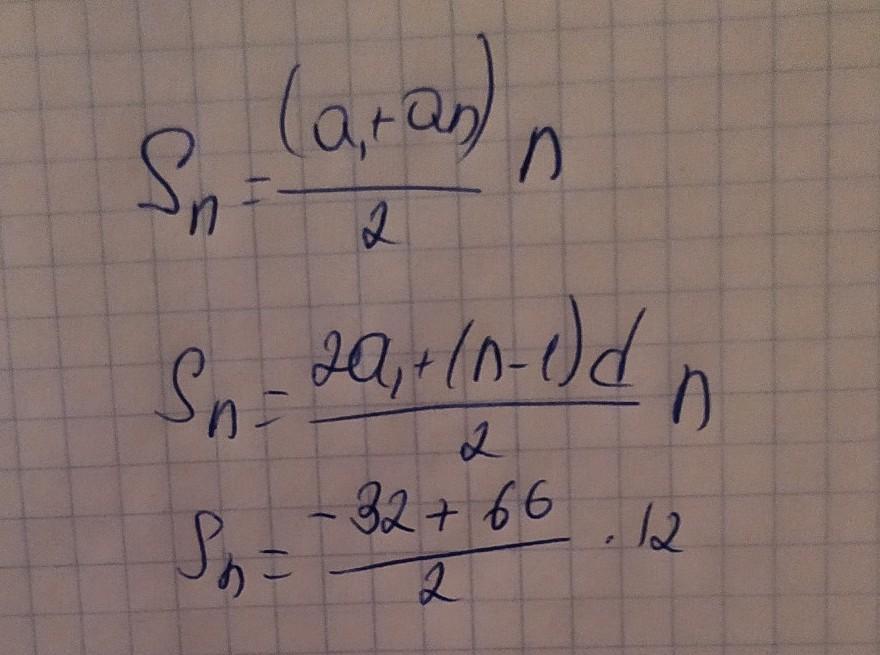 Sₙ = (a₁+aₙ)/2 n
Sₙ = 2a₁+(n-1)d/2 n
Sₙ = -32+66/2 · 12